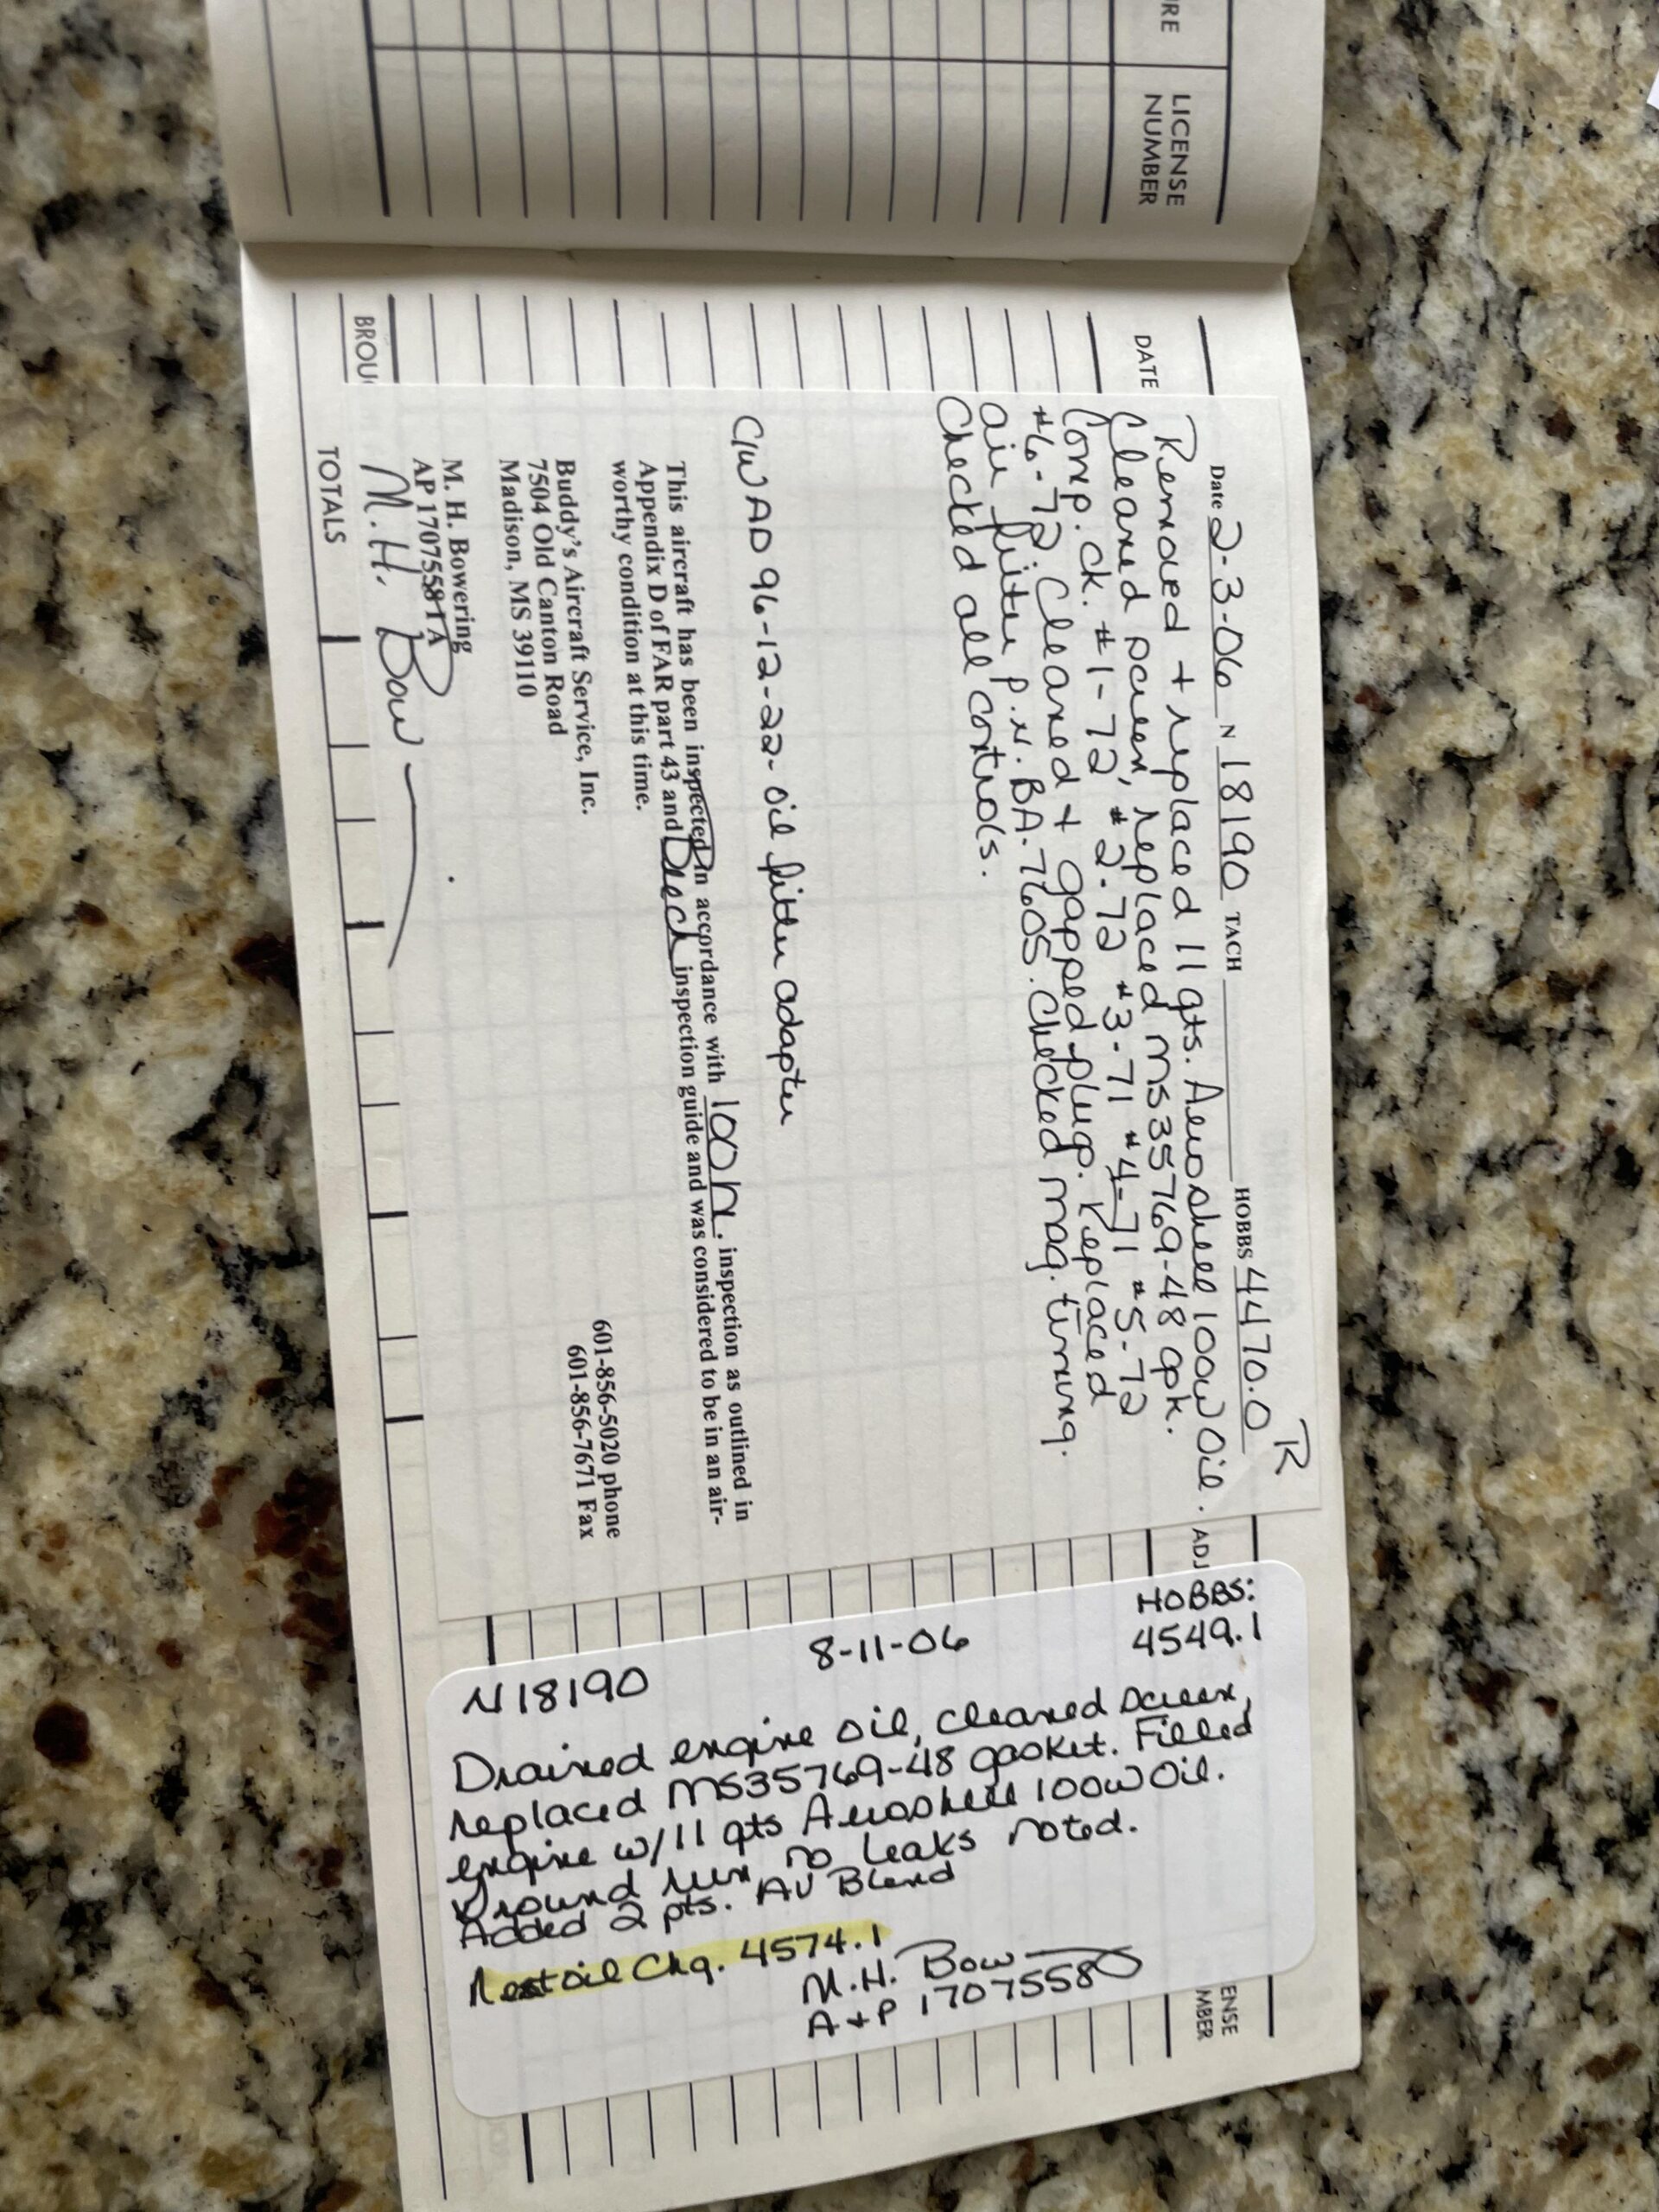 RE
LICENSE
NUMBER
DATE
R
Date 2-3-06 N 18190 TACH HOBBS 4470.0
Removed + replaced 11 qts. Aeroshell 100W Oil.
Cleaned screen, replaced MS35769-48 gsk.
Comp. ck. #1-72 #2-72 #3-71 #4-71 #5-72
#6-72. Cleaned + gapped plugs. Replaced
air filter P.N. BA-7605. Checked mag. timing.
Checked all controls.
C/W AD 96-12-22- Oil filter adapter
This aircraft has been inspected in accordance with 100 hr. inspection as outlined in
Appendix D of FAR part 43 and Beech inspection guide and was considered to be in an air-
worthy condition at this time.
Buddy's Aircraft Service, Inc.
7504 Old Canton Road
Madison, MS 39110
601-856-5020 phone
601-856-7671 Fax
M. H. Bowering
AP 1707558 IA
M. H. Bow
BROU
TOTALS
ADJ
HOBBS:
N18190 8-11-06 4549.1
Drained engine oil, cleaned screen,
replaced MS35769-48 gasket. Filled
engine w/11 qts Aeroshell 100W Oil.
Ground run no leaks noted.
Added 2 pts. AV Blend
Next oil Chg. 4574.1
M.H. Bow
A+P 1707558
ENSE
MBER